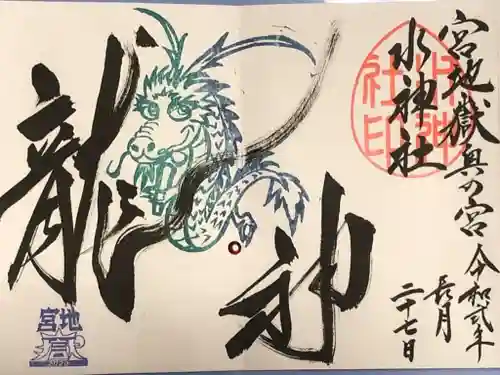 宮地嶽奥の宮
水神社
令和弐年
長月
二十七日
龍神
水神社印
宮地
宮
2020